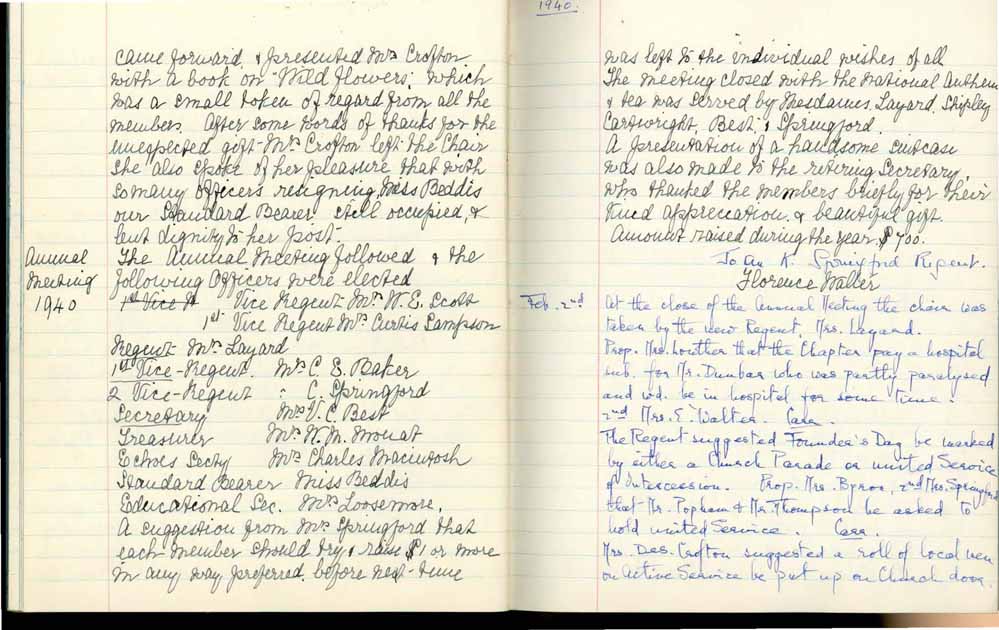 came forward, & presented Mrs Crofton
with a book on "Wild flowers", which
was a small token of regard from all the
members. After some words of thanks for the
unexpected gift - Mrs Crofton left the Chair
She also spoke of her pleasure that with
so many officers resigning, Miss Beddis
our Standard Bearer still occupied, &
lent dignity to her post -
Annual Meeting 1940
The Annual Meeting followed & the
following Officers were elected
1st Vice R Vice Regent - Mrs W. E. Scott
1st Vice Regent Mrs Curtis Sampson
Regent - Mrs Layard
1st Vice-Regent. Mrs C. E. Baker
2 Vice-Regent " C. Springford
Secretary Mrs V. C. Best
Treasurer Mrs W. M. Mouat
Echoes Secty Mrs Charles Macintosh
Standard Bearer Miss Beddis
Educational Sec. Mrs Loosemore.
A suggestion from Mrs Springford that
each member should try & raise $1 or more
in any way preferred, before next June
1940.
was left to the individual wishes of all
The meeting closed with the National Anthem
& tea was served by Mesdames, Layard, Shipley
Cartwright, Best, & Springford.
A presentation of a handsome suitcase
was also made to the retiring Secretary,
who thanked the members briefly for their
kind appreciation, & beautiful gift.
Amount raised during the year, $700.
Jo an K. Springford Regent.
Florence Walter
Feb. 2nd
At the close of the Annual Meeting the chair was
taken by the new Regent, Mrs. Layard.
Prop. Mrs. Lowther that the Chapter pay a hospital
sub. for Mr. Dunbar who was partly paralysed
and wd. be in hospital for some time.
2nd Mrs. E. Walter. Carr.
The Regent suggested Founder's Day be marked
by either a Church Parade or united Service
of Intercession. Prop. Mrs. Byron, 2nd Mrs. Springford
that Mr. Popham & Mr. Thompson be asked to
hold united Service. Carr.
Mrs. Des. Crofton suggested a roll of local men
on Active Service be put up on Church door.